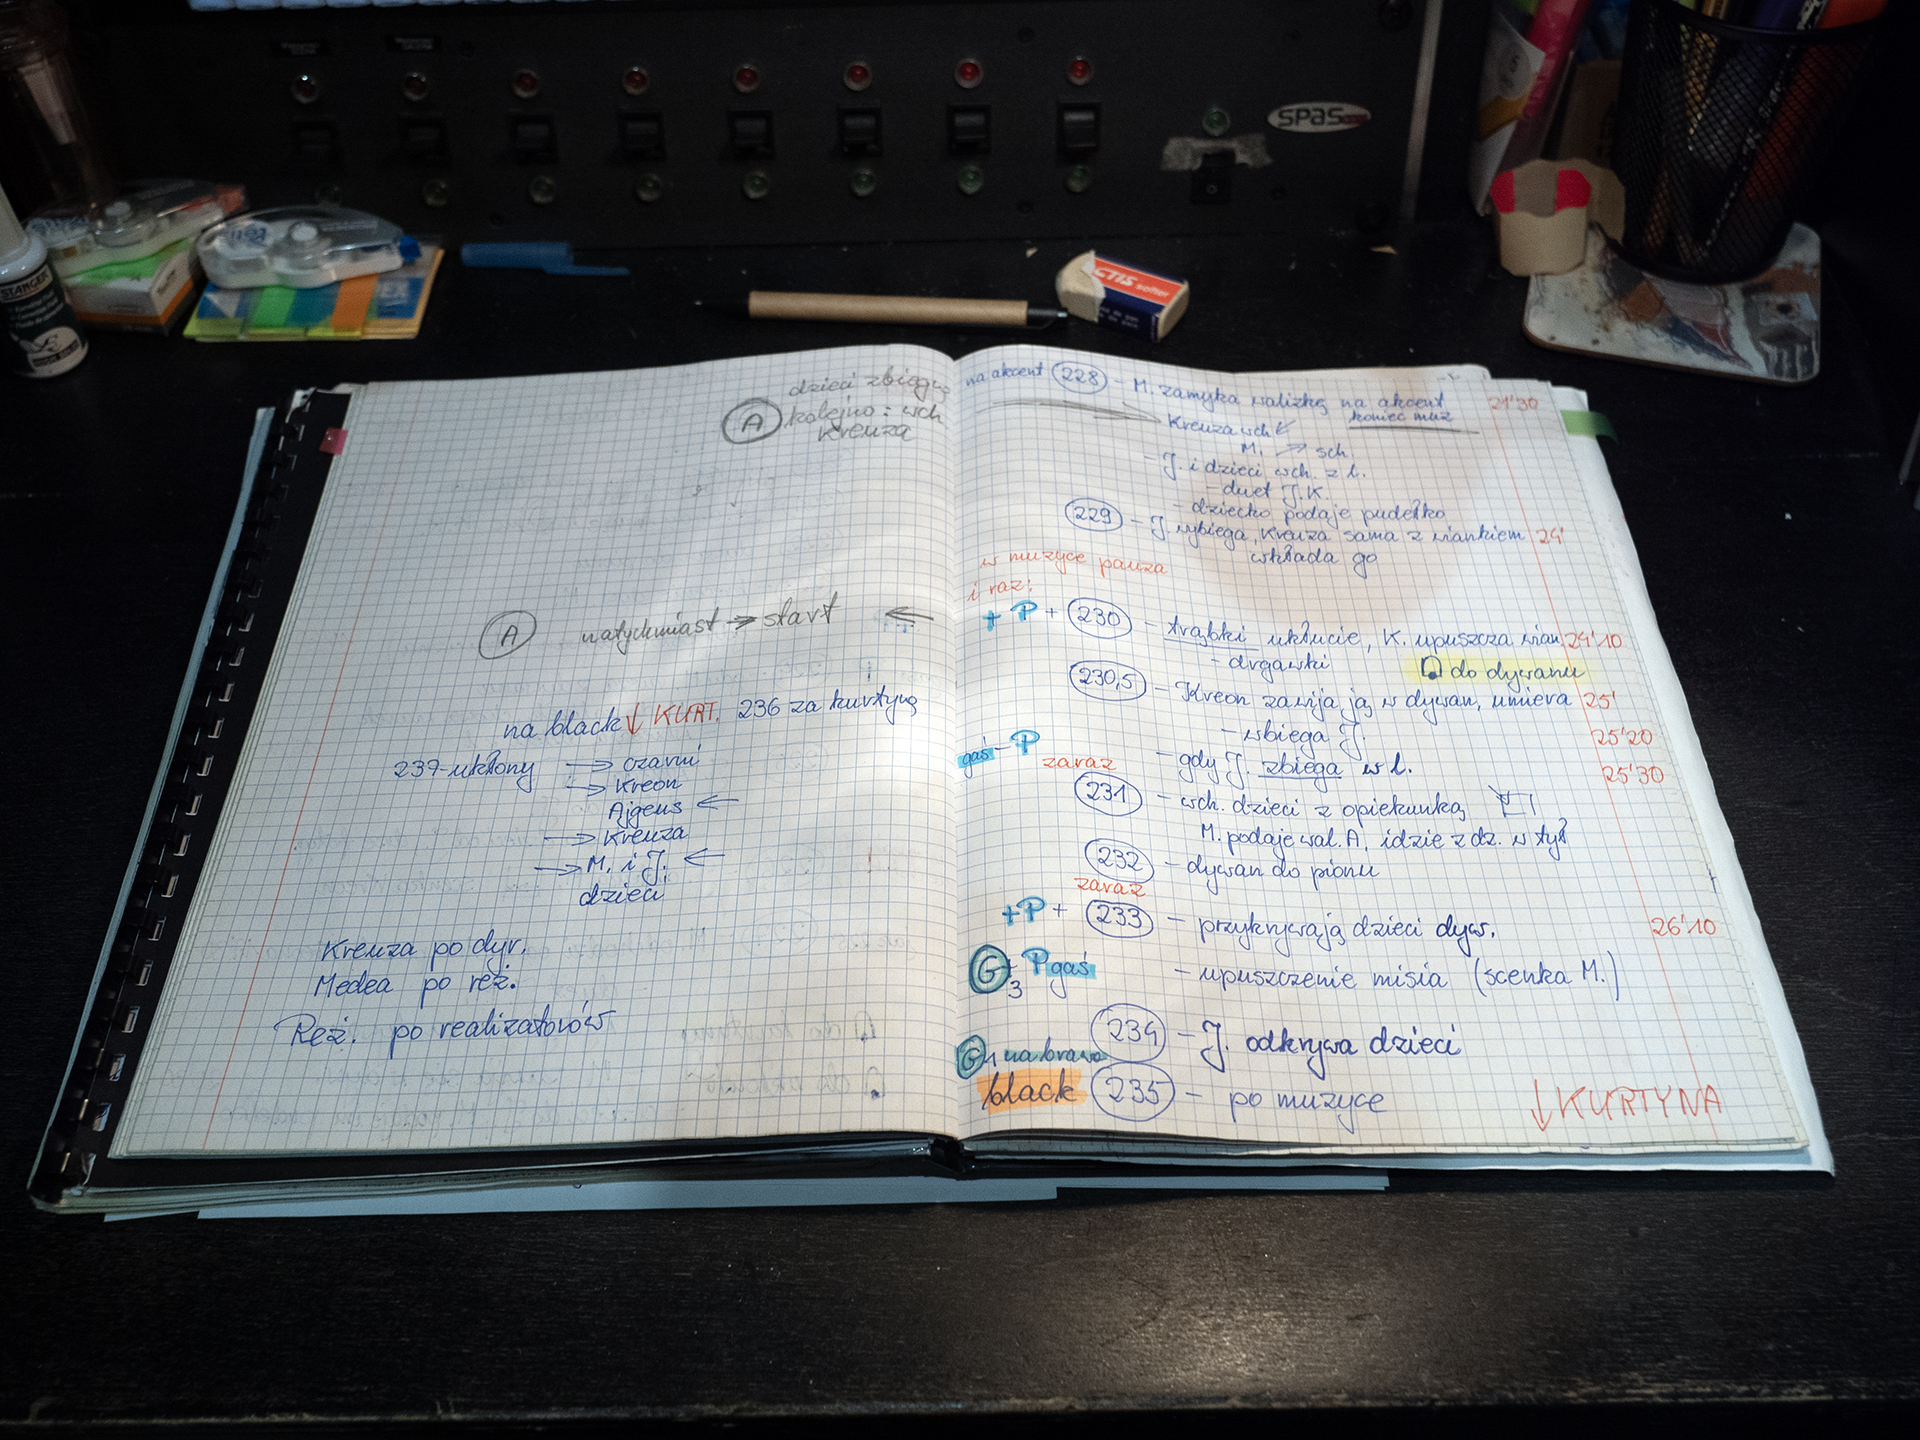 spas
STANGER
softer
dzieci zbiegną
A kolejno: wch
Kreuza
A natychmiast → start ←
na black ↓ KURT. 236 za kurtyną
237-ukłony → czarni
→ Kreon
Ajgeus ←
→ Kreuza
→ M. i J. ←
dzieci
Kreuza po dyr.
Medea po reż.
Reż. po realizatorów
na akcent 228 - M. zamyka walizkę na akcent 21'30
koniec muz
Kreuza wch
M. → sch.
- J. i dzieci wch. z l.
- duet J.K.
- dziecko podaje pudełko
229 - J. wybiega, Kreuza sama z wiankiem 24'
wkłada go
w muzyce pauza
i raz:
+ P + 230 - trąbki ukłucie, K. upuszcza wian. 24'10
- drgawki do dywanu
230,5 - Kreon zawija ją w dywan, umiera 25'
- wbiega J. 25'20
gaś - P zaraz - gdy J. zbiega w l. 25'30
231 - wch. dzieci z opiekunką
M. podaje wal. A, idzie z dz. w tył
232 - dywan do pionu
zaraz
+P + 233 - przykrywają dzieci dyw. 26'10
G 3 P gaś - upuszczenie misia (scenka M.)
234 - J. odkrywa dzieci
G1 na brawa
black 235 - po muzyce ↓ KURTYNA